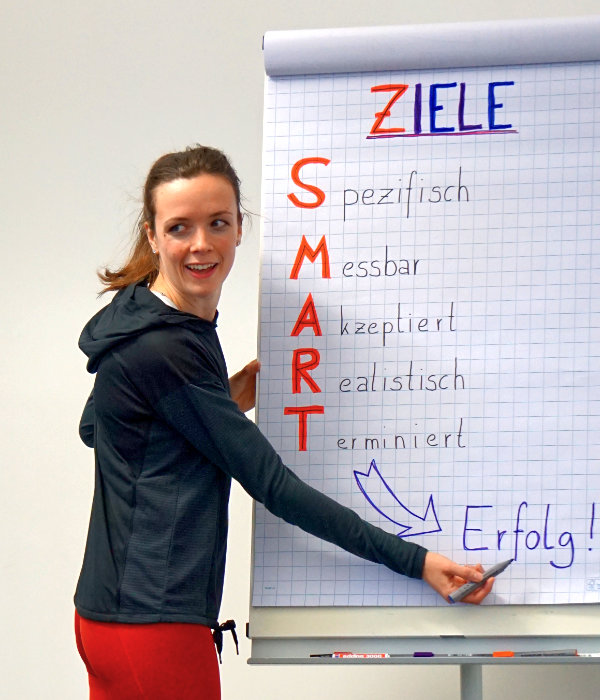 ZIELE
Spezifisch
Messbar
Akzeptiert
Realistisch
Terminiert
Erfolg!
edding 3000